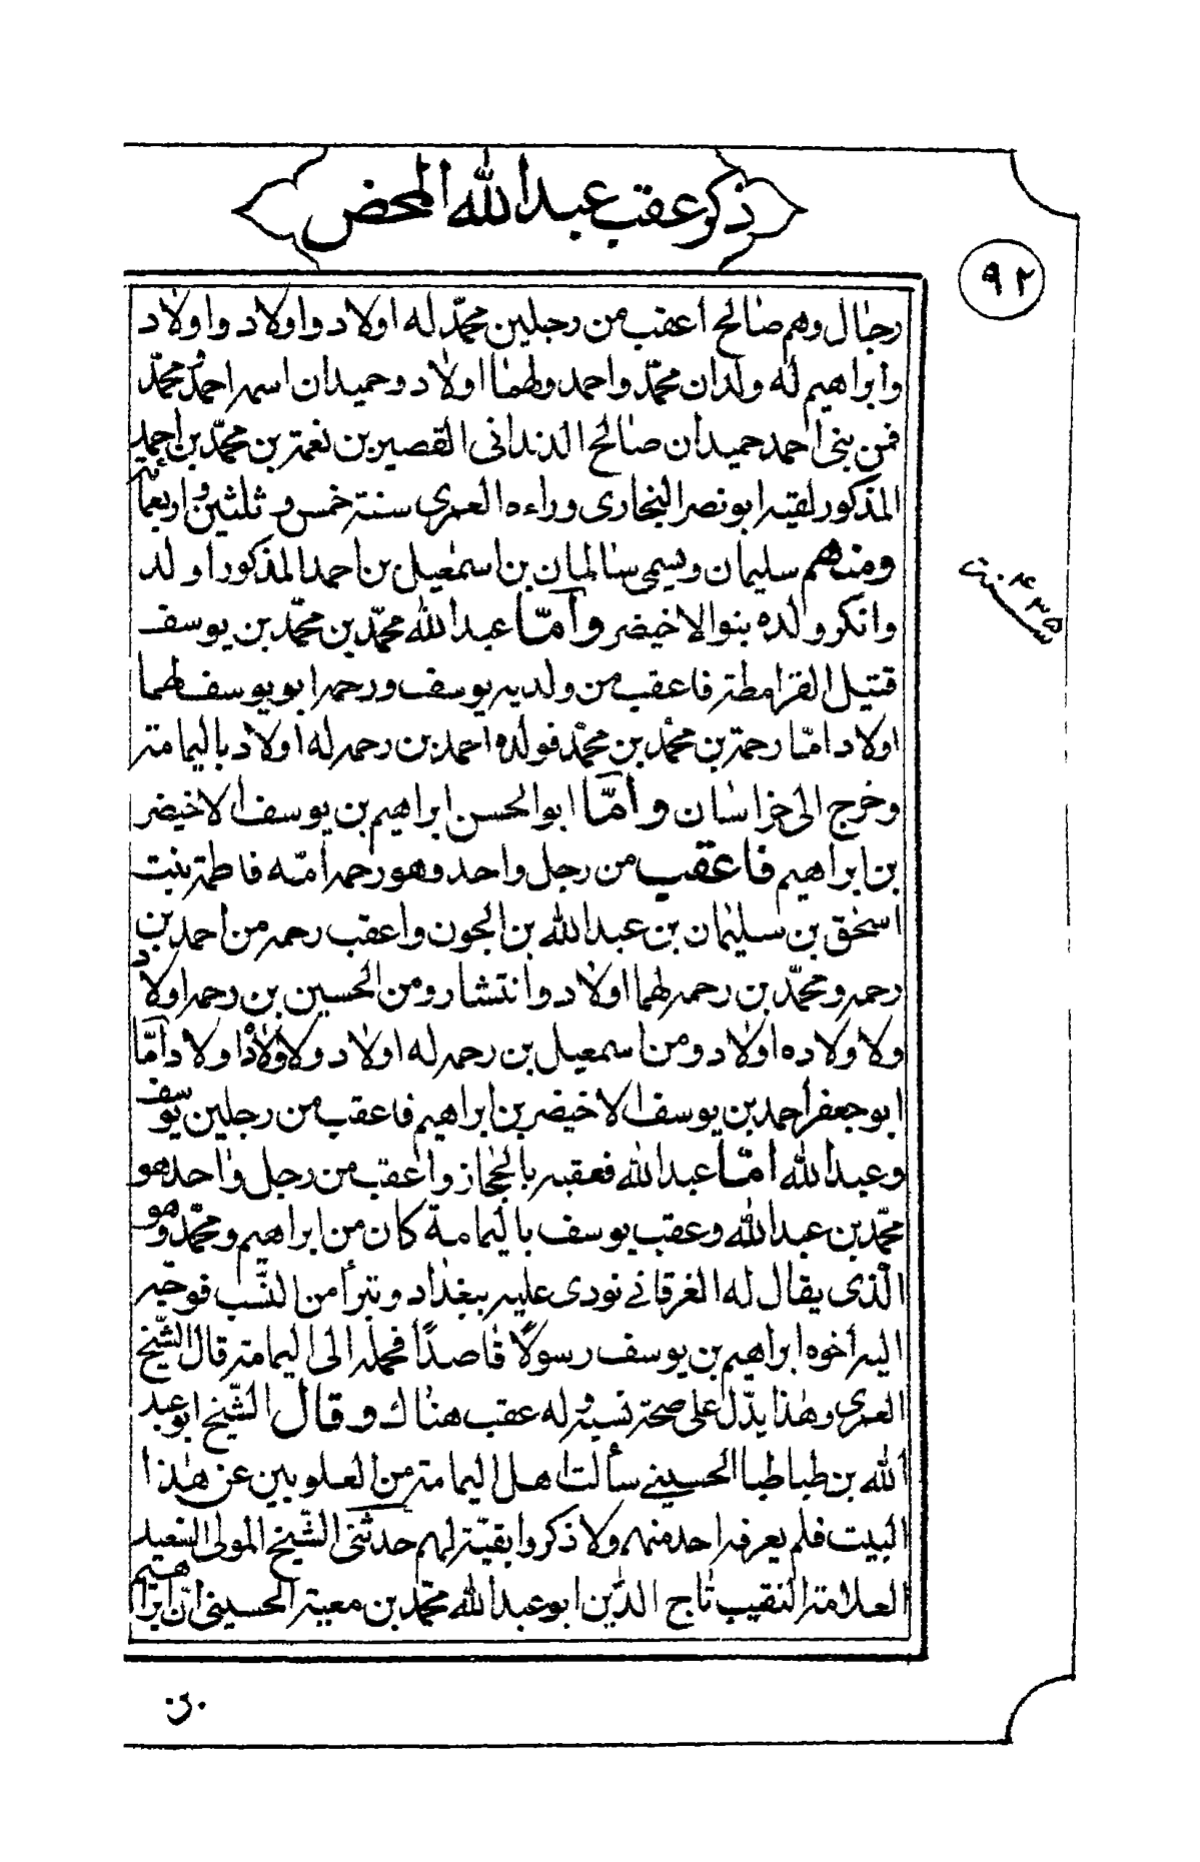 ذكر عقب عبد الله المحض
٩٢
رجال وهم صالح أعقب من رجلين محمّد له اولاد واولاد واولاد
وابراهيم له ولدان محمّد واحمد ولهما اولاد وحميدان اسمه احمد بن محمّد
فمن بنى احمد حميدان صالح الدندانى القصير بن نعمة بن محمّد بن احمد
المذكور لقيه ابونصر البخارى وراءه العمرى سنة خمس و ثلثين واربعمائة
ومنهم سليمان ويسمى سالمان بن اسمعيل بن احمد المذكور اولد
سنة ٤٣٥
وانكر ولده بنو الاخيضر وأمّا عبد الله محمّد بن محمّد بن يوسف
قتيل القرامطة فاعقب من ولديه يوسف ورحمه ابو يوسف لهما
اولاد امّا رحمة بن محمّد بن محمّد فولده احمد بن رحمه له اولاد باليمامة
وخرج الى خراسان وأمّا ابو الحسن ابراهيم بن يوسف الاخيضر
بن ابراهيم فاعقب من رجل واحد وهو رحمه أمّه فاطمة بنت
اسحق بن سليمان بن عبد الله بن الجون واعقب رحمه من احمد بن
رحمه ومحمّد بن رحمه لهما اولاد وانتشار ومن الحسين بن رحمه اولاد
ولاولاده اولاد ومن اسمعيل بن رحمه له اولاد ولاولاده اولاد امّا
ابو جعفر أحمد بن يوسف الاخيضر بن ابراهيم فاعقب من رجلين يوسف
وعبد الله امّا عبد الله فعقبه بالحجاز واعقب من رجل واحد هو
محمّد بن عبد الله وعقب يوسف باليمامة كان من ابراهيم ومحمّد وهو
الّذى يقال له الغرقانى نودى عليه ببغداد وتبرأ من النّسب فوجّه
اليه أخوه ابراهيم بن يوسف رسولًا قاصدًا فحمله الى اليمامة قال الشّيخ
العمرى وهذا يدّل على صحة نسبه له عقب هناك وقال الشّيخ ابو عبد
الله بن طباطبا الحسينى سألت اهل اليمامة من العلويين عن هذا
البيت فلم يعرفه احد منهم ولا ذكروا بقيّة لهم حدثنى الشّيخ المولى السّعيد
العلامة النقيب تاج الدّين ابو عبد الله محمّد بن معية الحسينى انّ ابراهيم
بن